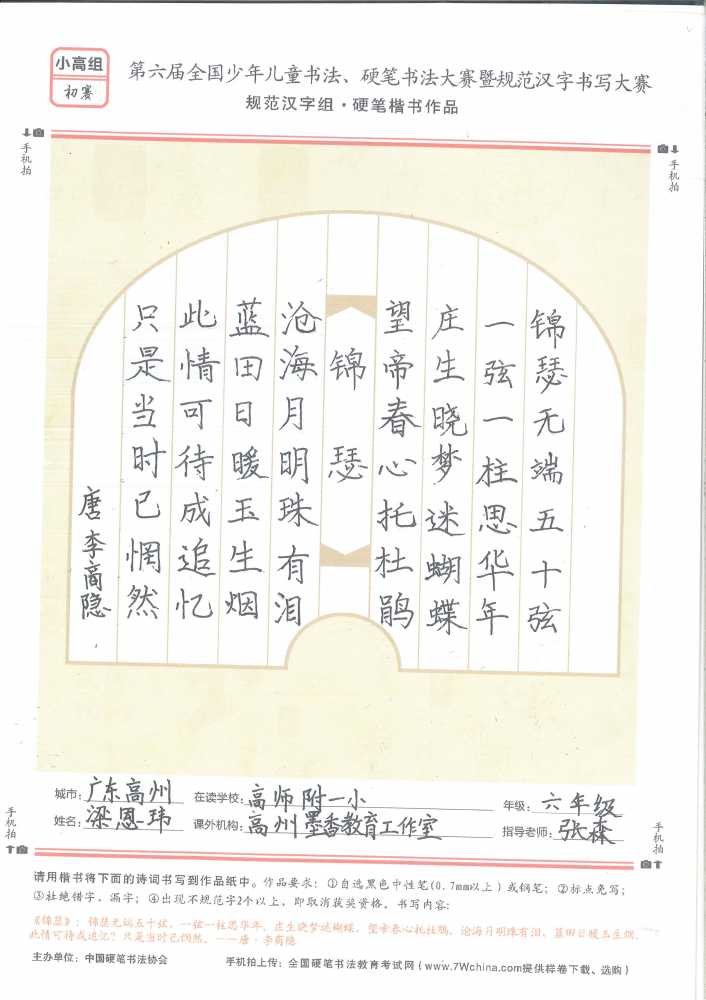 小高组
初赛
第六届全国少年儿童书法、硬笔书法大赛暨规范汉字书写大赛
规范汉字组·硬笔楷书作品
手机拍
手机拍
锦瑟无端五十弦
一弦一柱思华年
庄生晓梦迷蝴蝶
望帝春心托杜鹃
锦瑟
沧海月明珠有泪
蓝田日暖玉生烟
此情可待成追忆
只是当时已惘然
唐李商隐
城市：广东高州 在读学校：高师附一小 年级：六年级
姓名：梁恩玮 课外机构：高州墨香教育工作室 指导老师：张森
手机拍
手机拍
请用楷书将下面的诗词书写到作品纸中。作品要求：①自选黑色中性笔(0.7mm以上)或钢笔；②标点免写；
③杜绝错字，漏字；④出现不规范字2个以上，即取消获奖资格。书写内容：
《锦瑟》：锦瑟无端五十弦，一弦一柱思华年，庄生晓梦迷蝴蝶，望帝春心托杜鹃，沧海月明珠有泪，蓝田日暖玉生烟，
此情可待成追忆？只是当时已惘然。——唐·李商隐
主办单位：中国硬笔书法协会 手机拍上传：全国硬笔书法教育考试网(www.7Wchina.com提供样卷下载、选购)